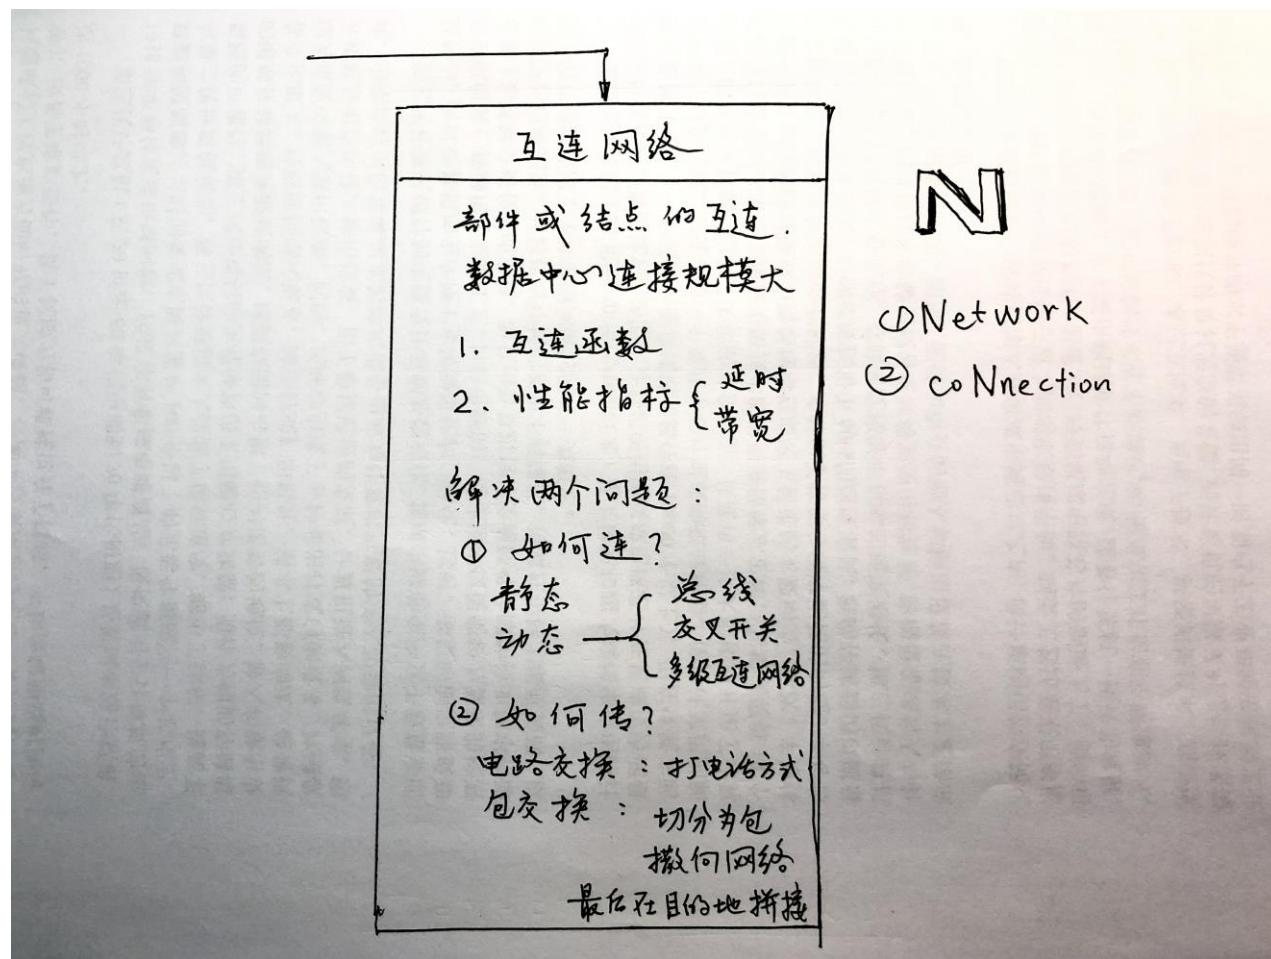 互连网络
部件或结点的互连.
数据中心连接规模大
1. 互连函数
2. 性能指标 { 延时
带宽
解决两个问题:
① 如何连?
静态
动态 { 总线
交叉开关
多级互连网络
② 如何传?
电路交换: 打电话方式
包交换: 切分为包
撒向网络
最后在目的地拼接
N
①Network
② coNnection